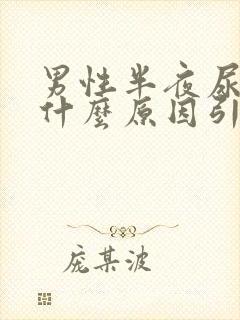 男性半夜尿
什麼原因引
龐某波